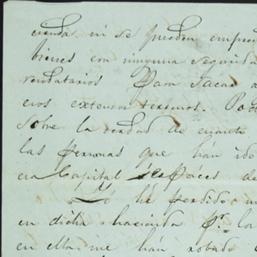 ciendas ni se pueden empren
bienes con ninguna segurida
rendatarios Para sacar a
esos extensos terrenos. Pod
sobre la verdad de cuanto
las personas que han ido
era Capital capaces de
Yo he perdido u
en dicha hacienda pr. la
en ella me han robado